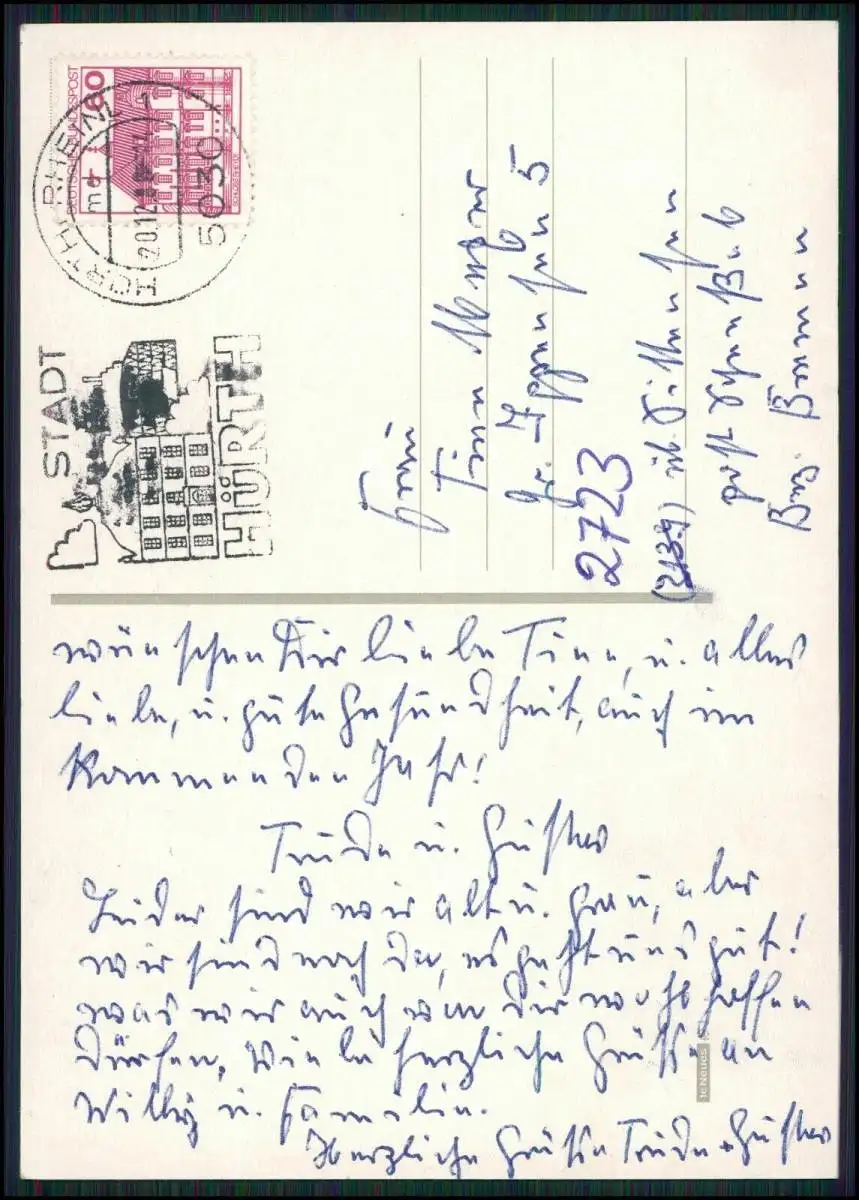 DEUTSCHE BUNDESPOST
60
HÜRTH, RHEINL 1
ma
20.12.
5030
STADT
HÜRTH
Frau
Tine
Gr. Ippensen 5
2723
(2139) üb. Sittensen
post Scheeßel
Brz. Bremen
wünschen Dir liebe Tine, u. alles
liebe, u. gute Gesundheit, auch im
Kommenden Jahr!
Trude u. Gustav
Leider sind wir alt u. grau, aber
wir sind noch da, es geht uns gut!
was wir auch von Dir wohl hoffen
dürfen, Viele herzliche Grüße an
Willy u. Familie.
Herzliche Grüße Trude + Gustav
teNeues